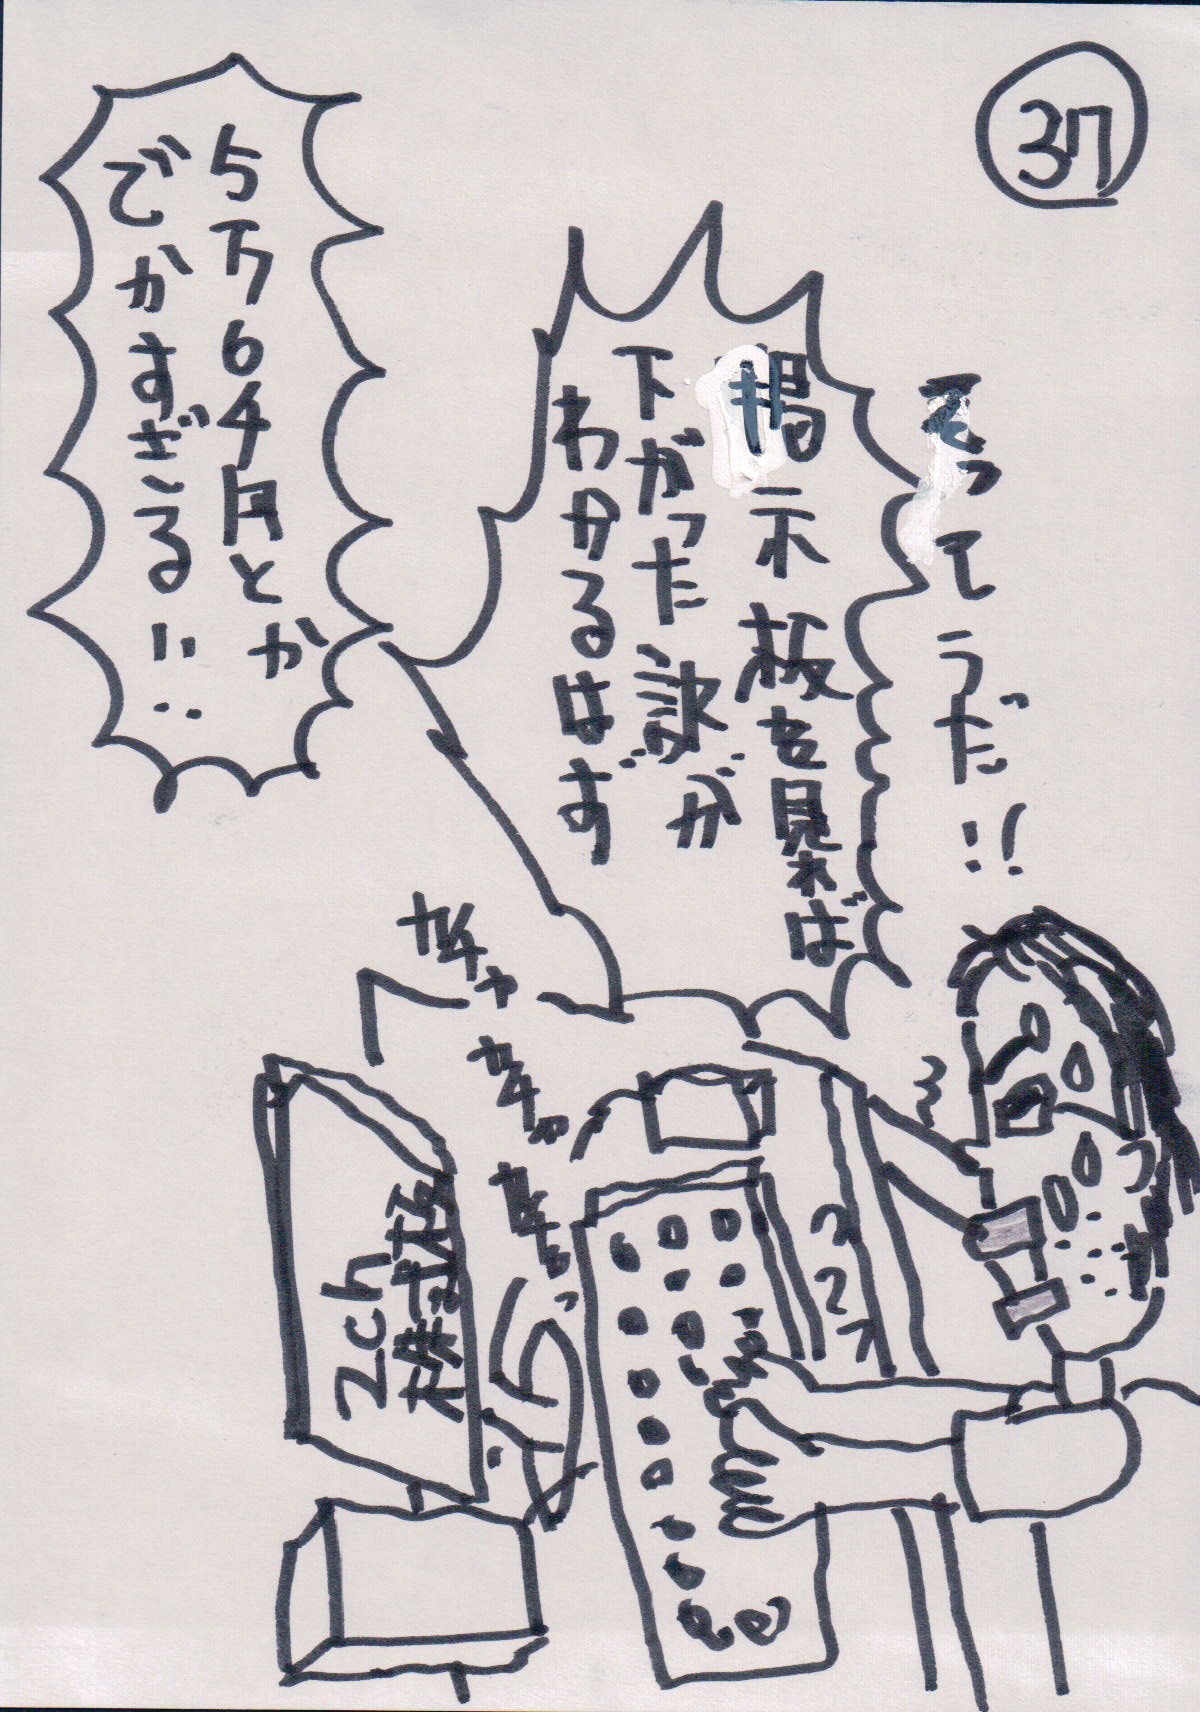 37
そってうだ!!
掲示板を見れば
下がった訳が
わかるはず
5万64月とか
でかすぎる!!
ガチャ
ガチャ
ガチャッ
2ch
株式板